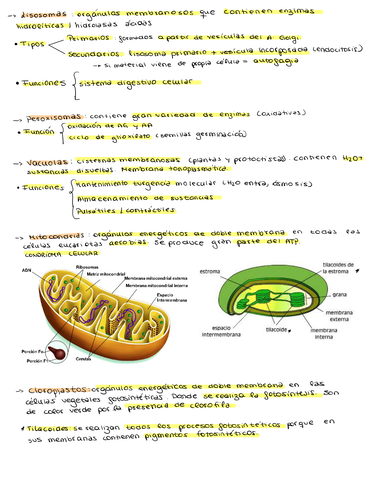 → Lisosomas: orgánulos membranosos que contienen enzimas
hidrolíticas / hidrolasas ácidas
• Tipos
Primarios: formados a partir de vesículas del A. Golgi
Secundarios: lisosoma primario + vesícula incorporada (endocitosis)
→ si material viene de propia célula = autofagia
• Funciones { sistema digestivo celular
→ Peroxisomas: contiene gran variedad de enzimas (oxidativas)
• Función { oxidación de AG y AA
ciclo de glioxilato (semillas germinación)
→ Vacuolas: cisternas membranosas (plantas y protoctistas). contienen H2O+
sustancias disueltas. Membrana tonoplasmática
• Funciones { Mantenimiento turgencia molecular (H2O entra, ósmosis)
Almacenamiento de sustancias
Pulsátiles / contráctiles
→ Mitocondrias: orgánulos energéticos de doble membrana en todas las
células eucariotas aerobias. Se produce gran parte del ATP.
CONDRIOMA CELULAR
ADN
Ribosomas
Matriz mitocondrial
Membrana mitocondrial externa
Membrana mitocondrial interna
Espacio
Intermembrana
Porción Fo
Porción F1
Crestas
estroma
tilacoides de
la estroma
grana
membrana
externa
membrana
interna
tilacoide
espacio
intermembrana
→ Cloroplastos: orgánulos energéticos de doble membrana en las
células vegetales fotosintéticas. Donde se realiza la fotosíntesis. Son
de color verde por la presencia de clorofila
• Tilacoides: se realizan todos los procesos fotosintéticos porque en
sus membranas contienen pigmentos fotosintéticos.